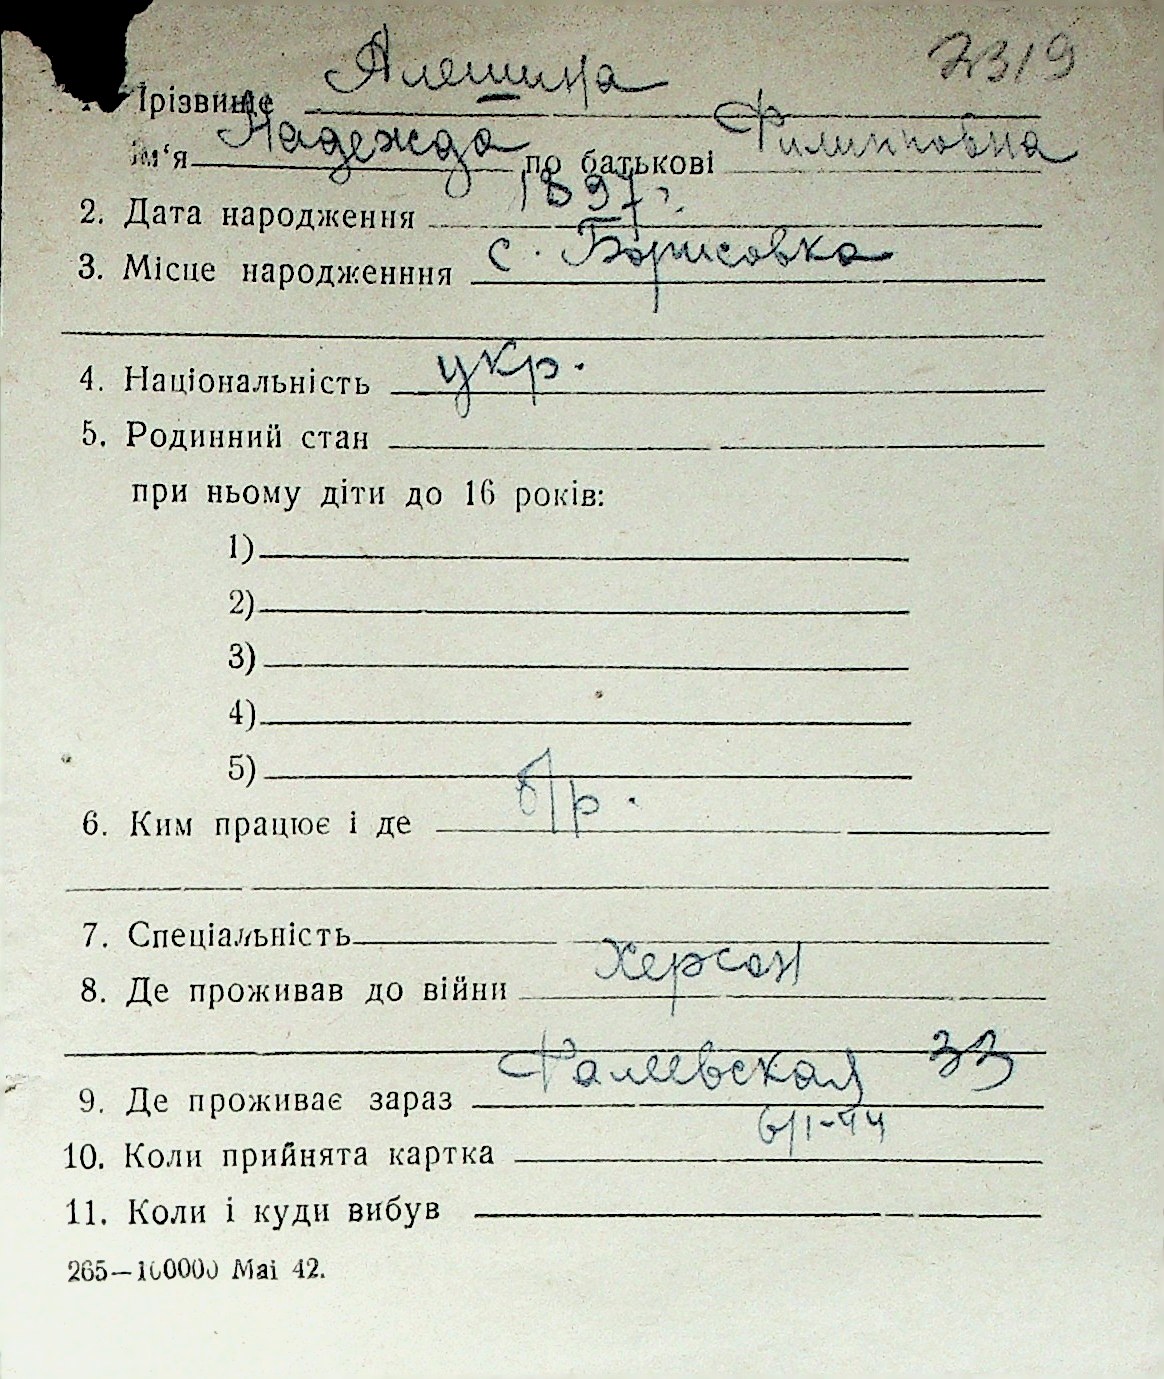 2319
1. Прізвище Алешина
Ім‘я Надежда по батькові Филипповна
2. Дата народження 1897г.
3. Місце народженння с. Борисовка
4. Національність укр.
5. Родинний стан
при ньому діти до 16 років:
1)
2)
3)
4)
5)
6. Ким працює і де б/р.
7. Спеціальність
8. Де проживав до війни Херсон
9. Де проживає зараз Фалеевская 33
10. Коли прийнята картка 6/1-44
11. Коли і куди вибув
265—100000 Маі 42.